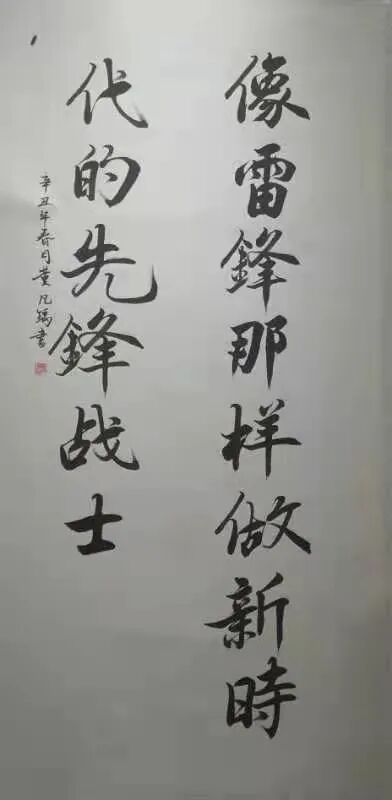 像雷鋒那样做新時
代的先鋒战士
辛丑年春月黄凡
书